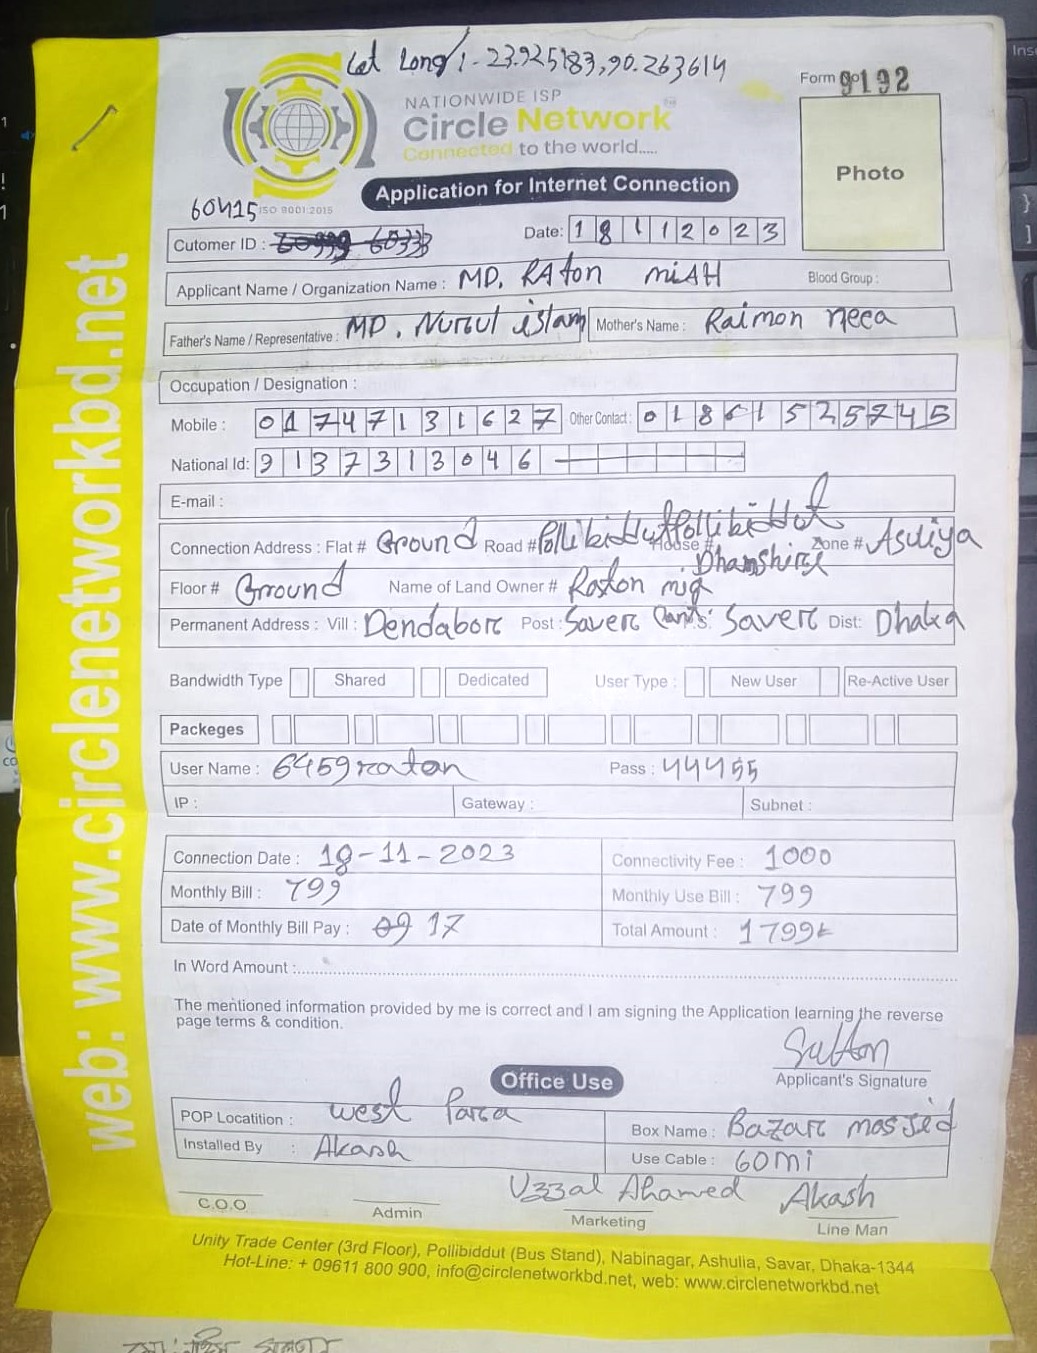 Let Long/:- 23.925183,90.263614
Form 9192
NATIONWIDE ISP
Circle Network
Connected to the world.....
Photo
Application for Internet Connection
60415 ISO 9001:2015
Cutomer ID : 60999 60333 Date: 18112023
Applicant Name / Organization Name : MD. RAton miAH Blood Group :
Father's Name / Representative : MD. Nurul islam Mother's Name : Raimon neca
Occupation / Designation :
Mobile : 01747131627 Other Contact : 01861525745
National Id: 9137313046
E-mail :
Connection Address : Flat # Ground Road # Pollibiddut House # Pollibiddut Zone # Asuliya
Dhamshirg
Floor # Ground Name of Land Owner # Raton mia
Permanent Address : Vill : Dendabor Post : Saver Cant: P.S: Saver Dist: Dhaka
Bandwidth Type Shared Dedicated User Type : New User Re-Active User
Packeges
User Name : 6459ratan Pass : 44455
IP : Gateway : Subnet :
Connection Date : 18-11-2023 Connectivity Fee : 1000
Monthly Bill : 799 Monthly Use Bill : 799
Date of Monthly Bill Pay : 09 17 Total Amount : 1799
In Word Amount :
The mentioned information provided by me is correct and I am signing the Application learning the reverse
page terms & condition.
Applicant's Signature
Office Use
POP Locatition : west Para Box Name : Bazar mosjid
Installed By : Akash Use Cable : 60mi
Uzzal Ahamed Akash
C.O.O Admin Marketing Line Man
Unity Trade Center (3rd Floor), Pollibiddut (Bus Stand), Nabinagar, Ashulia, Savar, Dhaka-1344
Hot-Line: + 09611 800 900, info@circlenetworkbd.net, web: www.circlenetworkbd.net
web: www.circlenetworkbd.net